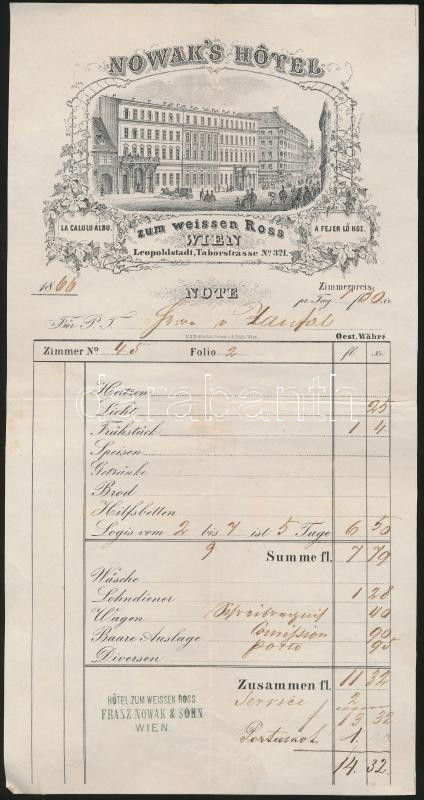 NOWAK'S HÔTEL
LA CALULU ALBU.
zum weissen Ross
A FEJER LÓ HOZ.
WIEN
Leopoldstadt, Taborstrasse No. 321.
1866
Zimmerpreis
NOTE
pr. Tag 1 fl 30 xr.
Für P. T. Herrn v
Oest. Währg
Zimmer No 45 Folio 2 fl. xr.
Heitzen
Licht 25
Frühstück 1 4
Speisen
Getränke
Brod
Hilfsbetten
Logis vom 2 bis 7 ist 5 Tage 6 50
9 Summe fl. 7 79
Wäsche
Lohndiener 1 28
Wagen 40
Baare Auslage Comission 90
Diversen porto 95
Zusammen fl. 11 32
Service 2
HÔTEL ZUM WEISSEN ROSS
FRANZ NOWAK & SOHN
WIEN.
13 32
1.
14. 32.
darabanth